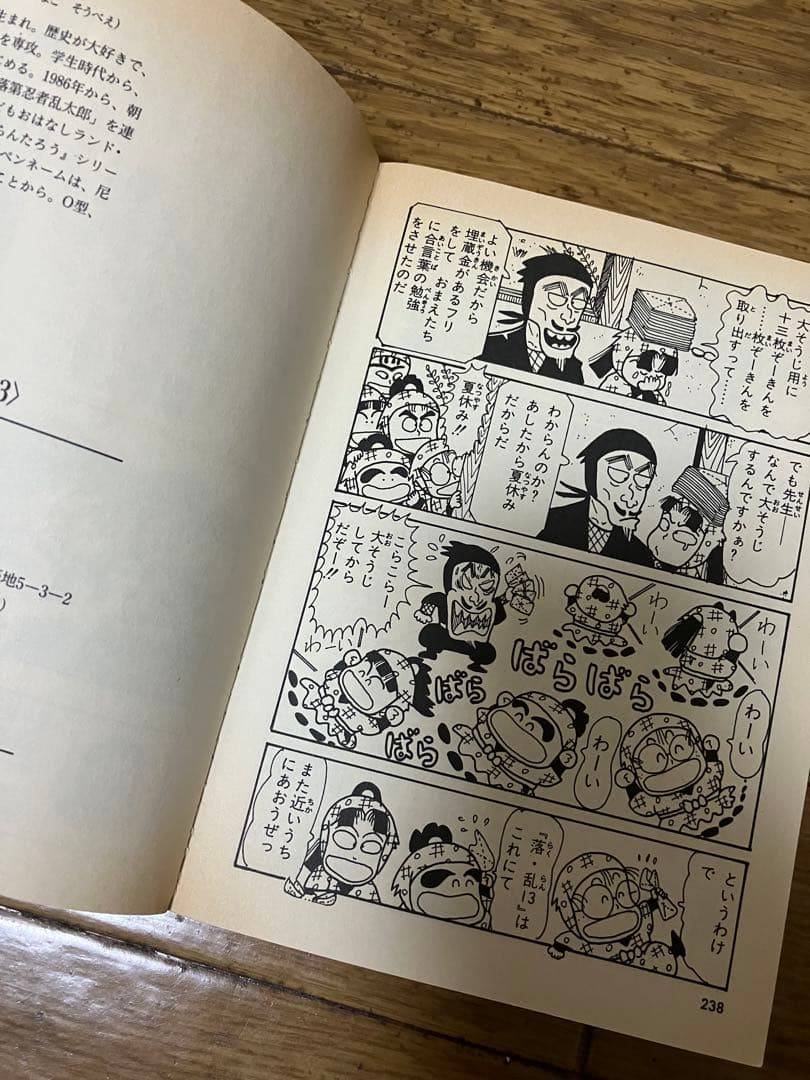 こ そうべえ)
生まれ。歴史が大好きで、
を専攻。学生時代から、
める。1986年から、朝
落第忍者乱太郎」を連
どもおはなしランド・
らんたろう』シリー
ペンネームは、尼
ことから。O型、
3〉
地5―3―2
)
大そうじ用に
十三枚ぞーきんを
……枚ぞーきんを
取り出すって……
よい機会だから
埋蔵金があるフリ
をして おまえたち
に合言葉の勉強
をさせたのだ
でも先生―
なんで大そうじ
するんですかぁ?
わからんのか?
あしたから夏休み
だからだ
夏休み!!
わーい
わーい
わーい
わーい
わーい
ばらばら
ばら
ばら
こらこらー
大そうじ
してから
だぞー!!
というわけ
で
『落・乱13』は
これにて
また近いうち
にあおうぜっ
238